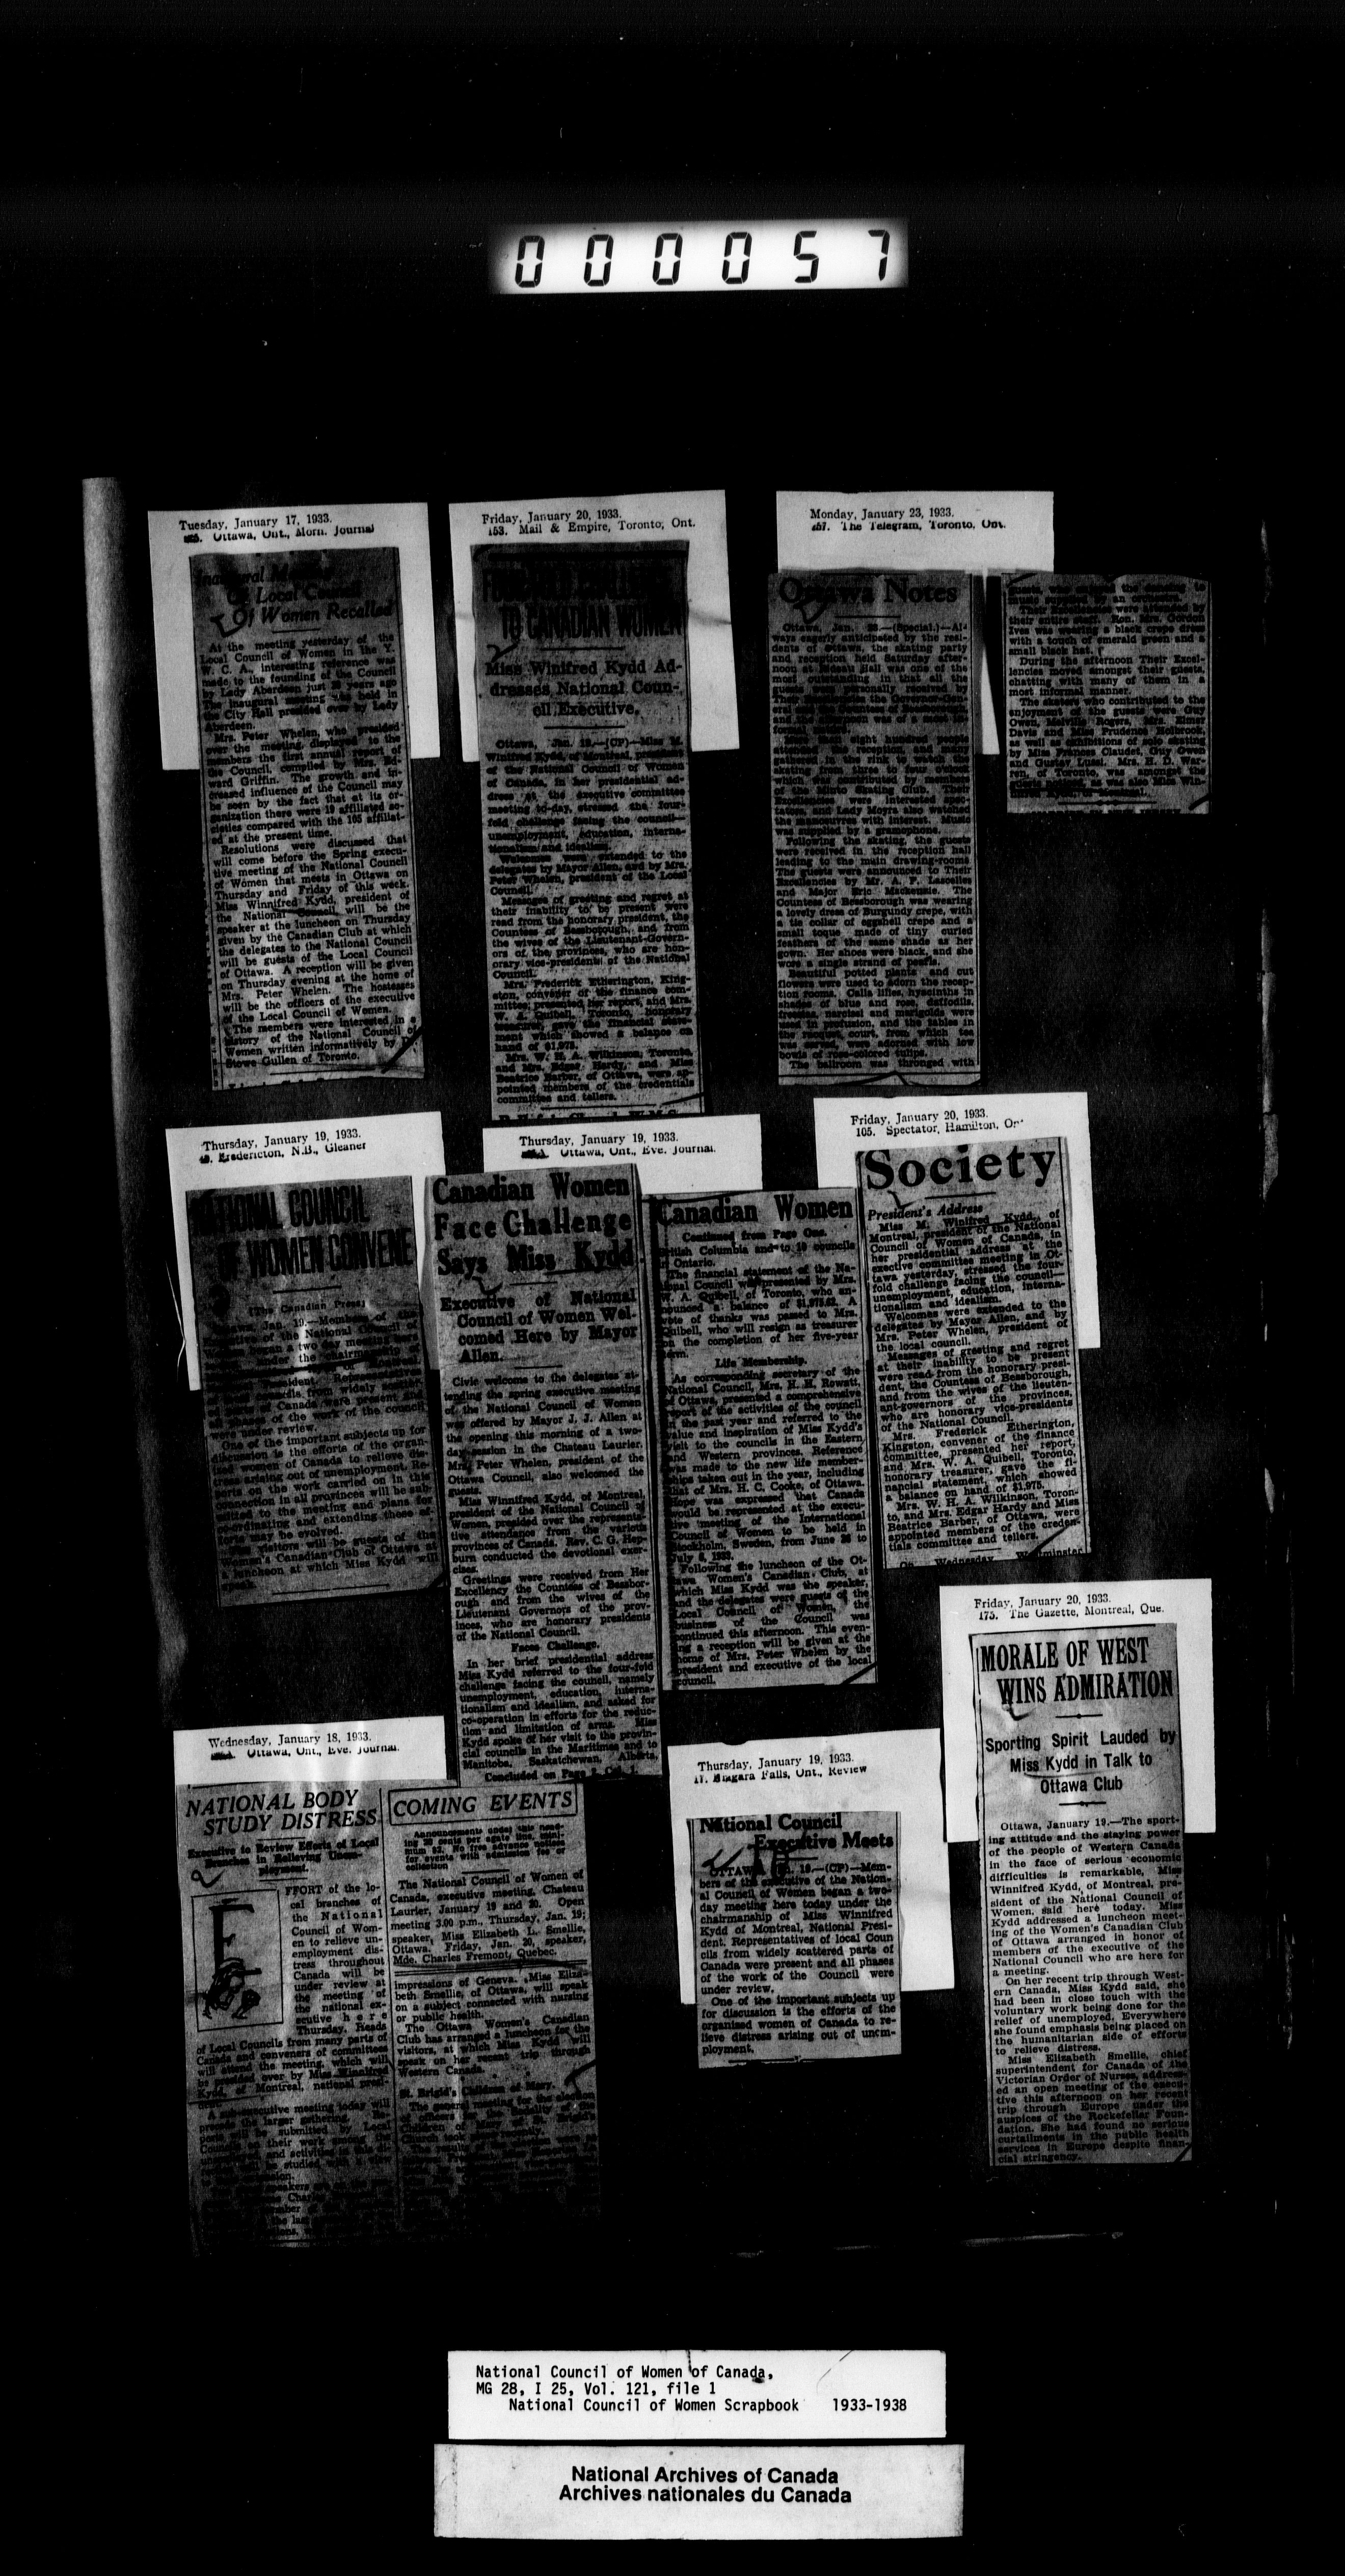 000057
Tuesday, January 17, 1933.
Ottawa, Ont., Morn. Journal
Inaugural
Of Local Council
Of Women Recalled
At the meeting yesterday of the
Local Council of Women in the Y.
W. C. A., interesting reference was
made to the founding of the Council
by Lady Aberdeen just years ago
The inaugural meeting was held in
the City Hall presided over by Lady
Aberdeen.
Mrs. Peter Whelen, who presided
over the meeting, displayed to the
members the first annual report of
the Council, compiled by Mrs. Ed-
ward Griffin. The growth and in-
creased influence of the Council may
be seen by the fact that at its or-
ganization there were 19 affiliated so-
cieties compared with the 105 affiliat-
ed at the present time.
Resolutions were discussed that
will come before the Spring execu-
tive meeting of the National Council
of Women that meets in Ottawa on
Thursday and Friday of this week.
Miss Winnifred Kydd, president of
the National Council, will be the
speaker at the luncheon on Thursday
given by the Canadian Club at which
the delegates to the National Council
will be guests of the Local Council
of Ottawa. A reception will be given
on Thursday evening at the home of
Mrs. Peter Whelen. The hostesses
will be the officers of the executive
of the Local Council of Women.
The members were interested in a
history of the National Council of
Women written informatively by
Stowe Gullen of Toronto.
Friday, January 20, 1933.
153. Mail & Empire, Toronto, Ont.
TO CANADIAN WOMEN
Miss Winifred Kydd Ad-
dresses National Coun-
cil Executive.
Ottawa, Jan. 19.—(CP)—Miss M.
Winifred Kydd, of Montreal, president
of the National Council of Women
of Canada, in her presidential ad-
dress at the executive committee
meeting to-day, stressed the four-
fold challenge facing the council—
unemployment, education, interna-
tionalism and idealism.
Welcomes were extended to the
delegates by Mayor Allen, and by Mrs.
Peter Whelen, president of the Local
Council.
Messages of greeting and regret at
their inability to be present were
read from the honorary president, the
Countess of Bessborough, and from
the wives of the Lieutenant-Govern-
ors of the provinces, who are hon-
orary vice-presidents of the National
Council.
Mrs. Frederick Etherington, King-
ston, convener of the finance com-
mittee, presented her report, and Mrs.
W. A. Quibell, Toronto, honorary
treasurer, gave the financial state-
ment which showed a balance on
hand of $1,975.
Mrs. W. H. A. Wilkinson, Toronto,
and Mrs. Edgar Hardy, and Miss
Beatrice Barber, of Ottawa, were ap-
pointed members of the credentials
committee and tellers.
Monday, January 23, 1933.
157. The Telegram, Toronto, Ont.
Ottawa Notes
Ottawa, Jan. 23.—(Special.)—Al-
ways eagerly anticipated by the resi-
dents of Ottawa, the skating party
and reception held Saturday after-
noon at Rideau Hall was one of the
most outstanding in that all the
guests were personally received by
eight hundred people
attended the reception and many
gathered in the rink to watch the
skating from three to four o'clock
which was contributed by members
of the Minto Skating Club. Their
Excellencies were interested spec-
tators and Lady Moyra also watched
the manoeuvres with interest. Music
was supplied by a gramophone.
Following the skating, the guests
were received in the reception hall
leading to the main drawing-rooms
The guests were announced to Their
Excellencies by Mr. A. F. Lascelles
and Major Eric Mackenzie. The
Countess of Bessborough was wearing
a lovely dress of Burgundy crepe, with
a tie collar of eggshell crepe and a
small toque made of tiny curled
feathers of the same shade as her
gown. Her shoes were black, and she
wore a single strand of pearls.
Beautiful potted plants and cut
flowers were used to adorn the recep-
tion rooms. Calla lilies, hyacinths in
shades of blue and rose, daffodils,
freesias, narcissi and marigolds were
used in profusion, and the tables in
the racquet court, from which tea
was served, were adorned with low
bowls of rose-colored tulips.
The ballroom was thronged with
music supplied by an orchestra.
Their Excellencies were attended by
their entire staff. Hon. Mrs. Gordon
Ives was wearing a black crepe dress
with a touch of emerald green and a
small black hat.
During the afternoon Their Excel-
lencies moved amongst their guests,
chatting with many of them in a
most informal manner.
The skaters who contributed to the
enjoyment of the guests were Guy
Owen, Melville Rogers, Mrs. Elmer
Davis and Miss Prudence Holbrook,
as well as exhibitions of solo skating
by Miss Frances Claudet, Guy Owen
and Gustav Lussi. Mrs. H. D. War-
ren, of Toronto, was amongst the
Thursday, January 19, 1933.
Fredericton, N.B., Gleaner
NATIONAL COUNCIL
OF WOMEN CONVENE
(The Canadian Press)
Jan. 19.—Members of the
executive of the National Council of
Women began a two day meeting here
today under the chairmanship of
from widely scattered
parts of Canada were present and
all phases of the work of the council
were under review.
One of the important subjects up for
discussion is the efforts of the organ-
ized women of Canada to relieve dis-
tress arising out of unemployment. Re-
ports on the work carried on in this
connection in all provinces will be sub-
mitted to the meeting and plans for
co-ordinating and extending these ef-
forts may be evolved.
The visitors will be guests of the
Woman's Canadian Club of Ottawa at
a luncheon at which Miss Kydd will
speak.
Thursday, January 19, 1933.
Ottawa, Ont., Eve. Journal.
Canadian Women
Face Challenge
Says Miss Kydd
Executive of National
Council of Women Wel-
comed Here by Mayor
Allen.
Civic welcome to the delegates at-
tending the spring executive meeting
of the National Council of Women
was offered by Mayor J. J. Allen at
the opening this morning of a two-
day session in the Chateau Laurier.
Mrs. Peter Whelen, president of the
Ottawa Council, also welcomed the
guests.
Miss Winnifred Kydd, of Montreal,
president of the National Council of
Women, presided over the representa-
tive attendance from the various
provinces of Canada. Rev. C. G. Hep-
burn conducted the devotional exer-
cises.
Greetings were received from Her
Excellency the Countess of Bessbor-
ough and from the wives of the
Lieutenant Governors of the prov-
inces, who are honorary presidents
of the National Council.
Faces Challenge.
In her brief presidential address
Miss Kydd referred to the four-fold
challenge facing the council, namely
unemployment, education, interna-
tionalism and idealism, and asked for
co-operation in efforts for the reduc-
tion and limitation of arms. Miss
Kydd spoke of her visit to the provin-
cial councils in the Maritimes and to
Manitoba, Saskatchewan, Alberta,
Concluded on Page 2, Col. 1.
Canadian Women
Continued from Page One.
British Columbia and to 10 councils
in Ontario.
The financial statement of the Na-
tional Council was presented by Mrs.
W. A. Quibell, of Toronto, who an-
nounced a balance of $1,975.62. A
vote of thanks was passed to Mrs.
Quibell, who will resign as treasurer
on the completion of her five-year
term.
Life Membership.
As corresponding secretary of the
National Council, Mrs. H. H. Rowatt,
of Ottawa, presented a comprehensive
report of the activities of the council
in the past year and referred to the
value and inspiration of Miss Kydd's
visit to the councils in the Eastern
and Western provinces. Reference
was made to the new life member-
ships taken out in the year, including
that of Mrs. H. C. Cooke, of Ottawa.
Hope was expressed that Canada
would be represented at the execu-
tive meeting of the International
Council of Women to be held in
Stockholm, Sweden, from June 26 to
July 6, 1933.
Following the luncheon of the Ot-
tawa Women's Canadian Club, at
which Miss Kydd was the speaker,
and the delegates were guests of the
Local Council of Women, the
business of the Council was
continued this afternoon. This even-
ing a reception will be given at the
home of Mrs. Peter Whelen by the
president and executive of the local
council.
Friday, January 20, 1933.
105. Spectator, Hamilton, Ont.
Society
President's Address
Miss M. Winifred Kydd, of
Montreal, president of the National
Council of Women of Canada, in
her presidential address at the
executive committee meeting in Ot-
tawa yesterday, stressed the four-
fold challenge facing the council—
unemployment, education, interna-
tionalism and idealism.
Welcomes were extended to the
delegates by Mayor Allen, and by
Mrs. Peter Whelen, president of
the local council.
Messages of greeting and regret
at their inability to be present
were read from the honorary presi-
dent, the Countess of Bessborough,
and from the wives of the lieuten-
ant-governors of the provinces,
who are honorary vice-presidents
of the National Council.
Mrs. Frederick Etherington,
Kingston, convener of the finance
committee, presented her report,
and Mrs. W. A. Quibell, Toronto,
honorary treasurer, gave the fi-
nancial statement, which showed
a balance on hand of $1,975.
Mrs. W. H. A. Wilkinson, Toron-
to, and Mrs. Edgar Hardy and Miss
Beatrice Barber, of Ottawa, were
appointed members of the creden-
tials committee and tellers.
On Wednesday Westminster
Wednesday, January 18, 1933.
Ottawa, Ont., Eve. Journal.
NATIONAL BODY
STUDY DISTRESS
Executive to Review Efforts of Local
Branches in Relieving Unem-
ployment.
EFFORT of the lo-
cal branches of
the National
Council of Wom-
en to relieve un-
employment dis-
tress throughout
Canada will be
under review at
the meeting of
the national ex-
ecutive here
Thursday. Heads
of Local Councils from many parts of
Canada and conveners of committees
will attend the meeting, which will
be presided over by Miss Winnifred
Kydd, of Montreal, national presi-
dent.
COMING EVENTS
Announcements under this head-
ing 20 cents per agate line, mini-
mum $2. No free advance notices
for events with admission fee or
collection
The National Council of Women of
Canada, executive meeting, Chateau
Laurier, January 19 and 20. Open
meeting 3.00 p.m., Thursday, Jan. 19;
speaker, Miss Elizabeth L. Smellie,
Ottawa. Friday, Jan. 20, speaker,
Mde. Charles Fremont, Quebec.
impressions of Geneva. Miss Eliza-
beth Smellie, of Ottawa, will speak
on a subject connected with nursing
or public health.
The Ottawa Women's Canadian
Club has arranged a luncheon for the
visitors, at which Miss Kydd will
speak on her recent trip through
Western Canada.
St. Brigid's Children of Mary.
The general meeting for the election
Thursday, January 19, 1933.
Niagara Falls, Ont., Review
National Council
Executive Meets
OTTAWA, Jan. 19.—(CP)—Mem-
bers of the executive of the Nation-
al Council of Women began a two-
day meeting here today under the
chairmanship of Miss Winnifred
Kydd of Montreal, National Presi-
dent. Representatives of local Coun
cils from widely scattered parts of
Canada were present and all phases
of the work of the Council were
under review.
One of the important subjects up
for discussion is the efforts of the
organized women of Canada to re-
lieve distress arising out of unem-
ployment.
Friday, January 20, 1933.
175. The Gazette, Montreal, Que.
MORALE OF WEST
WINS ADMIRATION
Sporting Spirit Lauded by
Miss Kydd in Talk to
Ottawa Club
Ottawa, January 19.—The sport-
ing attitude and the staying power
of the people of Western Canada
in the face of serious economic
difficulties is remarkable, Miss
Winnifred Kydd, of Montreal, pre-
sident of the National Council of
Women, said here today. Miss
Kydd addressed a luncheon meet-
ing of the Women's Canadian Club
of Ottawa arranged in honor of
members of the executive of the
National Council who are here for
a meeting.
On her recent trip through West-
ern Canada, Miss Kydd said, she
had been in close touch with the
voluntary work being done for the
relief of unemployed. Everywhere
she found emphasis being placed on
the humanitarian side of efforts
to relieve distress.
Miss Elizabeth Smellie, chief
superintendent for Canada of the
Victorian Order of Nurses, address-
ed an open meeting of the execu-
tive this afternoon on her recent
trip through Europe under the
auspices of the Rockefeller Foun-
dation. She had found no serious
curtailments in the public health
services in Europe despite finan-
cial stringency.
National Council of Women of Canada,
MG 28, I 25, Vol. 121, file 1
National Council of Women Scrapbook 1933-1938
National Archives of Canada
Archives nationales du Canada